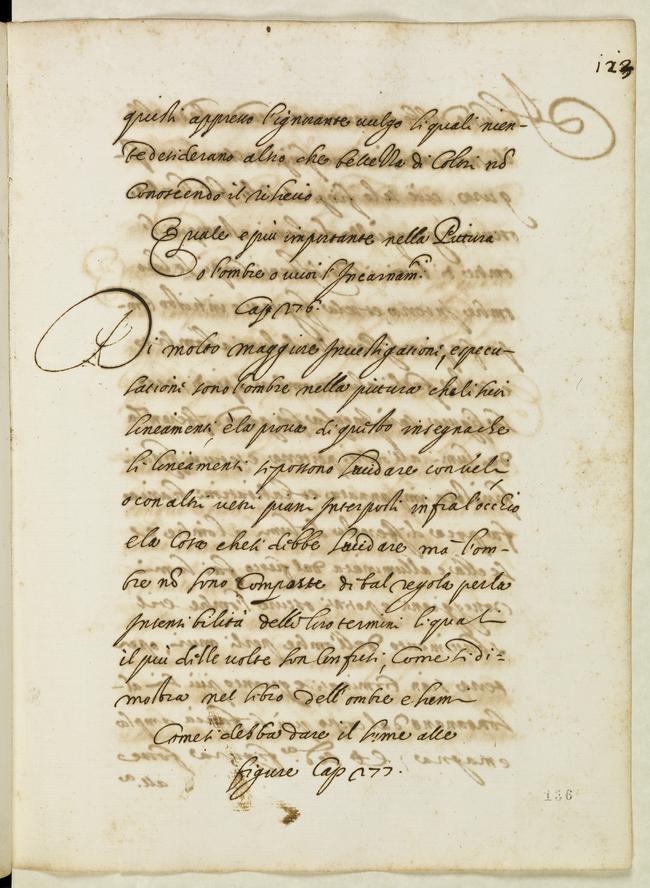 123
questi appresso l'ignorante vulgo li quali nien-
te desiderano altro che bellezza di Colori nõ
Conoscendo il rilievo
Quale e più importante nella Pittura
o l'ombre o vuoi l'Incarnam.ti
Cap 276.
Di molto maggiore Investigationi, e specu-
lationi sono l'ombre nella pittura che li suoi
lineamenti, è la prova di questo insegna che
li lineamenti si possono Lucidare con veli,
o con altri vetri piani Interposti infra l'occhio
e la Cosa che si debbe Lucidare ma l'om-
bre nõ sono Comprese di tal regola per la
Insensibilità delli loro termini li quali
il più delle volte son Confusi, Come si di-
mostra nel libro dell'ombre e lumi
Come si debba dare il lume alle
figure Cap 277.
136